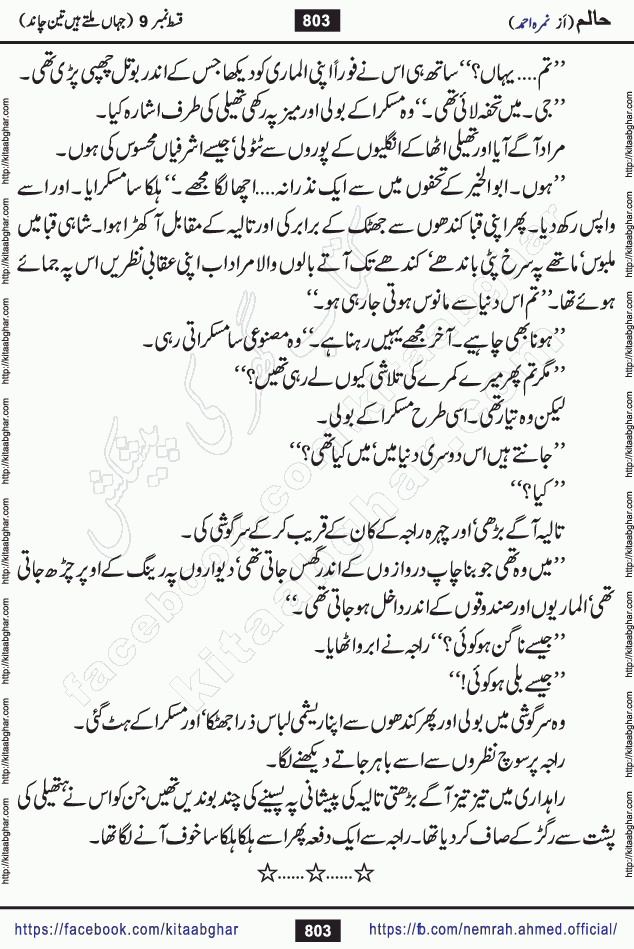 حالم (از نمرہ احمد) 803 قسط نمبر 9 (جہاں ملتے ہیں تین چاند)
’’تم.... یہاں؟‘‘ ساتھ ہی اس نے فوراً اپنی الماری کو دیکھا جس کے اندر بوتل چھپی پڑی تھی۔
’’جی۔ میں تحفہ لائی تھی۔‘‘ وہ مسکرا کے بولی اور میز پہ رکھی تھیلی کی طرف اشارہ کیا۔
مراد آگے آیا اور تھیلی اٹھا کے انگلیوں کے پوروں سے ٹٹولی‘ جیسے اشرفیاں محسوس کی ہوں۔
’’ہوں۔ ابوالخیر کے تحفوں میں سے ایک نذرانہ.... اچھا لگا مجھے۔‘‘ ہلکا سا مسکرایا۔ اور اسے
واپس رکھ دیا۔ پھر اپنی قبا کندھوں سے جھٹک کے برابر کی اور تالیہ کے مقابل آ کھڑا ہوا۔ شاہی قبا میں
ملبوس‘ ماتھے پہ سرخ پٹی باندھے‘ کندھے تک آتے بالوں والا مراد اب اپنی عقابی نظریں اس پہ جمائے
ہوئے تھا۔ ’’تم اس دنیا سے مانوس ہوتی جا رہی ہو۔‘‘
’’ہونا بھی چاہیے۔ آخر مجھے یہیں رہنا ہے۔‘‘ وہ مصنوعی سا مسکراتی رہی۔
’’مگر تم پھر میرے کمرے کی تلاشی کیوں لے رہی تھیں؟‘‘
لیکن وہ تیار تھی۔ اسی طرح مسکرا کے بولی۔
’’جانتے ہیں اس دوسری دنیا میں‘ میں کیا تھی؟‘‘
’’کیا؟‘‘
تالیہ آگے بڑھی‘ اور چہرہ راجہ کے کان کے قریب کر کے سرگوشی کی۔
’’میں وہ تھی جو بنا چاپ دروازوں کے اندر گھس جاتی تھی‘ دیواروں پہ رینگ کے اوپر چڑھ جاتی
تھی‘ الماریوں اور صندوقوں کے اندر داخل ہو جاتی تھی۔‘‘
’’جیسے ناگن ہو کوئی؟‘‘ راجہ نے ابرو اٹھایا۔
’’جیسے بلی ہو کوئی!‘‘
وہ سرگوشی میں بولی اور پھر کندھوں سے اپنا ریشمی لباس ذرا جھٹکا‘ اور مسکرا کے ہٹ گئی۔
راجہ پرسوچ نظروں سے اسے باہر جاتے دیکھنے لگا۔
راہداری میں تیز تیز آگے بڑھتی تالیہ کی پیشانی پہ پسینے کی چند بوندیں تھیں جن کو اس نے ہتھیلی کی
پشت سے رگڑ کے صاف کر دیا تھا۔ راجہ سے ایک دفعہ پھر اسے ہلکا ہلکا سا خوف آنے لگا تھا۔
☆......☆......☆
http://kitaabghar.com http://kitaabghar.com http://kitaabghar.com http://kitaabghar.com http://kitaabghar.com http://kitaabghar.com http://kitaabghar.com http://kitaabghar.com
http://kitaabghar.com http://kitaabghar.com http://kitaabghar.com http://kitaabghar.com http://kitaabghar.com http://kitaabghar.com http://kitaabghar.com http://kitaabghar.com
کتاب گھر کی پیشکش
kitaabghar.com
facebook.com/kitaabghar
https://facebook.com/kitaabghar 803 https://fb.com/nemrah.ahmed.official/